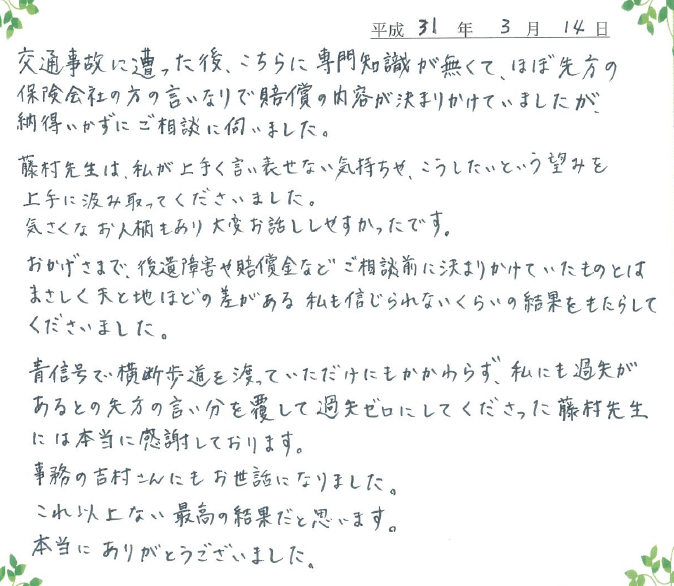 平成 31 年 3 月 14 日
交通事故に遭った後、こちらに専門知識が無くて、ほぼ先方の
保険会社の方の言いなりで賠償の内容が決まりかけていましたが、
納得いかずにご相談に伺いました。
藤村先生は、私が上手く言い表せない気持ちや、こうしたいという望みを
上手に汲み取ってくださいました。
気さくなお人柄もあり大変お話ししやすかったです。
おかげさまで、後遺障害や賠償金などご相談前に決まりかけていたものとは
まさしく天と地ほどの差がある私も信じられないくらいの結果をもたらして
くださいました。
青信号で横断歩道を渡っていただけにもかかわらず、私にも過失が
あるとの先方の言い分を覆して過失ゼロにしてくださった藤村先生
には本当に感謝しております。
事務の吉村さんにもお世話になりました。
これ以上ない最高の結果だと思います。
本当にありがとうございました。